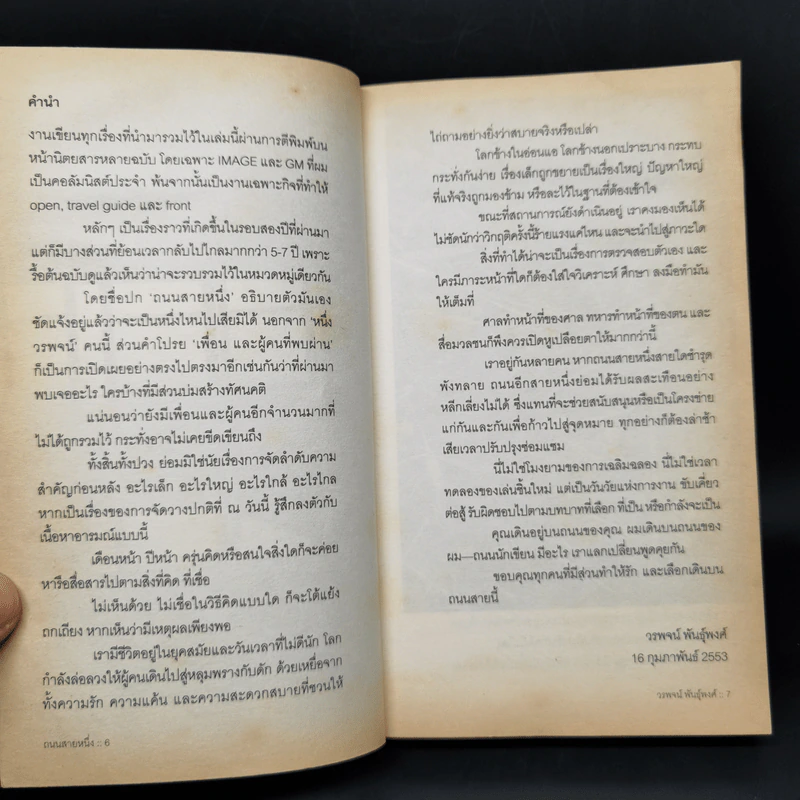 คำนำ
งานเขียนทุกเรื่องที่นำมารวมไว้ในเล่มนี้ผ่านการตีพิมพ์บน
หน้านิตยสารหลายฉบับ โดยเฉพาะ IMAGE และ GM ที่ผม
เป็นคอลัมนิสต์ประจำ พ้นจากนั้นเป็นงานเฉพาะกิจที่ทำให้
open, travel guide และ front
หลักๆ เป็นเรื่องราวที่เกิดขึ้นในรอบสองปีที่ผ่านมา
แต่ก็มีบางส่วนที่ย้อนเวลากลับไปไกลมากกว่า 5-7 ปี เพราะ
รื้อต้นฉบับดูแล้วเห็นว่าน่าจะรวบรวมไว้ในหมวดหมู่เดียวกัน
โดยชื่อปก ‘ถนนสายหนึ่ง’ อธิบายตัวมันเอง
ชัดแจ้งอยู่แล้วว่าจะเป็นหนึ่งไหนไปเสียมิได้ นอกจาก ‘หนึ่ง
วรพจน์’ คนนี้ ส่วนคำโปรย ‘เพื่อน และผู้คนที่พบผ่าน’
ก็เป็นการเปิดเผยอย่างตรงไปตรงมาอีกเช่นกันว่าที่ผ่านมา
พบเจออะไร ใครบ้างที่มีส่วนบ่มสร้างทัศนคติ
แน่นอนว่ายังมีเพื่อนและผู้คนอีกจำนวนมากที่
ไม่ได้ถูกรวมไว้ กระทั่งอาจไม่เคยขีดเขียนถึง
ทั้งสิ้นทั้งปวง ย่อมมิใช่นัยเรื่องการจัดลำดับความ
สำคัญก่อนหลัง อะไรเล็ก อะไรใหญ่ อะไรใกล้ อะไรไกล
หากเป็นเรื่องของการจัดวางปกติที่ ณ วันนี้ รู้สึกลงตัวกับ
เนื้อหาอารมณ์แบบนี้
เดือนหน้า ปีหน้า ครุ่นคิดหรือสนใจสิ่งใดก็จะค่อย
หารือสื่อสารไปตามสิ่งที่คิด ที่เชื่อ
ไม่เห็นด้วย ไม่เชื่อในวิธีคิดแบบใด ก็จะโต้แย้ง
ถกเถียง หากเห็นว่ามีเหตุผลเพียงพอ
เรามีชีวิตอยู่ในยุคสมัยและวันเวลาที่ไม่ดีนัก โลก
กำลังล่อลวงให้ผู้คนเดินไปสู่หลุมพรางกับดัก ด้วยเหยื่อจาก
ทั้งความรัก ความแค้น และความสะดวกสบายที่ชวนให้
ถนนสายหนึ่ง :: 6
ไถ่ถามอย่างยิ่งว่าสบายจริงหรือเปล่า
โลกข้างในอ่อนแอ โลกข้างนอกเปราะบาง กระทบ
กระทั่งกันง่าย เรื่องเล็กถูกขยายเป็นเรื่องใหญ่ ปัญหาใหญ่
ที่แท้จริงถูกมองข้าม หรือละไว้ในฐานที่ต้องเข้าใจ
ขณะที่สถานการณ์ยังดำเนินอยู่ เราคงมองเห็นได้
ไม่ชัดนักว่าวิกฤติครั้งนี้ร้ายแรงแค่ไหน และจะนำไปสู่ภาวะใด
สิ่งที่ทำได้น่าจะเป็นเรื่องการตรวจสอบตัวเอง และ
ใครมีภาระหน้าที่ใดก็ต้องใส่ใจวิเคราะห์ ศึกษา ลงมือทำมัน
ให้เต็มที่
ศาลทำหน้าที่ของศาล ทหารทำหน้าที่ของตน และ
สื่อมวลชนก็พึงควรเปิดหูเปิดตาให้มากกว่านี้
เราอยู่กันหลายคน หากถนนสายหนึ่งสายใดชำรุด
พังทลาย ถนนอีกสายหนึ่งย่อมได้รับผลสะเทือนอย่าง
หลีกเลี่ยงไม่ได้ ซึ่งแทนที่จะช่วยสนับสนุนหรือเป็นโครงข่าย
แก่กันและกันเพื่อก้าวไปสู่จุดหมาย ทุกอย่างก็ต้องล่าช้า
เสียเวลาปรับปรุงซ่อมแซม
นี่ไม่ใช่โมงยามของการเฉลิมฉลอง นี่ไม่ใช่เวลา
ทดลองของเล่นชิ้นใหม่ แต่เป็นวันวัยแห่งการงาน ขับเคี่ยว
ต่อสู้ รับผิดชอบไปตามบทบาทที่เลือก ที่เป็น หรือกำลังจะเป็น
คุณเดินอยู่บนถนนของคุณ ผมเดินบนถนนของ
ผม—ถนนนักเขียน มีอะไร เราแลกเปลี่ยนพูดคุยกัน
ขอบคุณทุกคนที่มีส่วนทำให้รัก และเลือกเดินบน
ถนนสายนี้
วรพจน์ พันธุ์พงศ์
16 กุมภาพันธ์ 2553
วรพจน์ พันธุ์พงศ์ :: 7